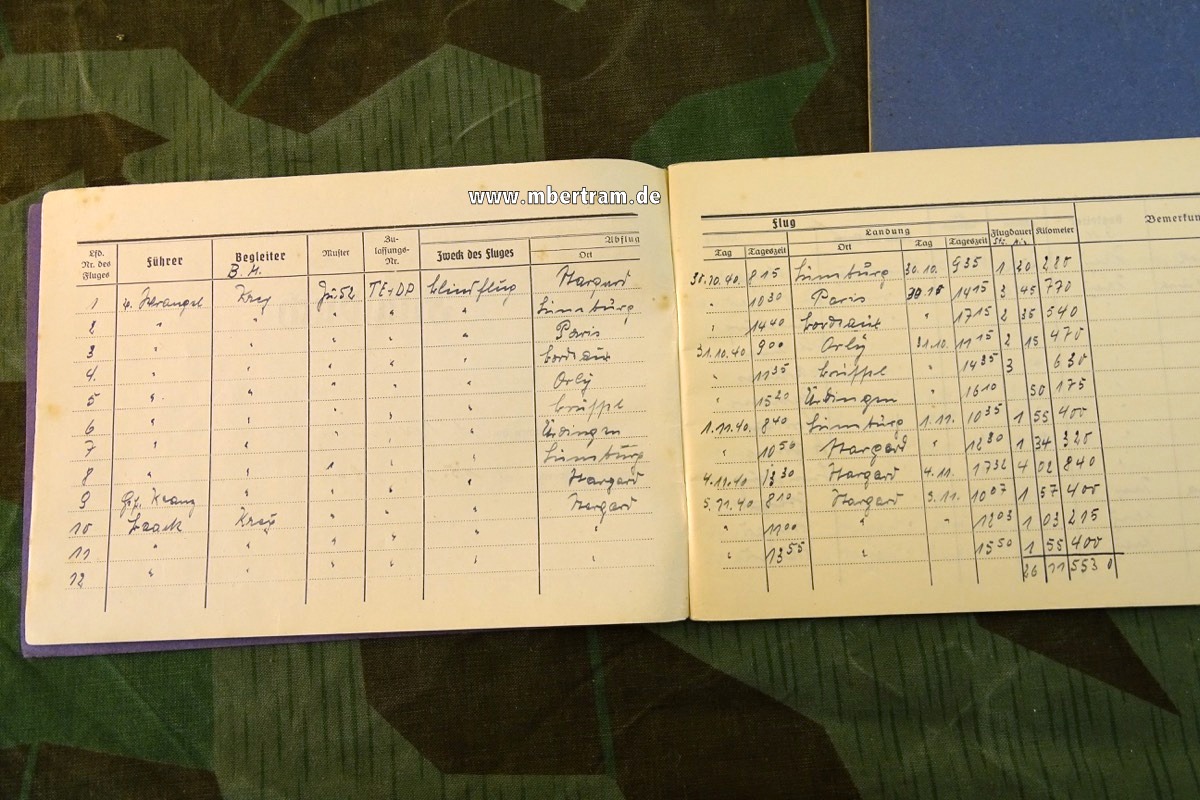 www.mbertram.de
Lfd. Nr. des Fluges Führer Begleiter Muster Zulassungs-Nr. Zweck des Fluges Abflug Ort
B. M.
1 Ju 52 TE+DP Blindflug Stargard
2 " " " " " Limburg
3 " " " " " Paris
4. " " " " " Bordeaux
5 " " " " " Orly
6 " " " " " Brüssel
7 " " " " Ürdingen
8 " " " " Limburg
9 Stargard
10 Stargard
11 " " " " " "
12 " " " " " "
Flug
Tag Tageszeit Landung Ort Tag Tageszeit Flugdauer St. Mi. Kilometer
30.10.40. 8 15 Limburg 30.10. 9 35 1 20 220
" 10 30 Paris 30.10 14 15 3 45 770
" 14 40 Bordeaux " 17 15 2 35 540
31.10.40 9 00 Orly 31.10. 11 15 2 15 470
" 11 35 Brüssel " 14 35 3 630
" 15 20 Ürdingen " 16 10 50 175
1.11.40. 8 40 Limburg 1.11. 10 35 1 55 400
" 10 56 Stargard " 12 30 1 34 320
4.11.40 13 30 Stargard 4.11. 17 32 4 02 840
5.11.40 8 10 Stargard 5.11. 10 07 1 57 400
" 11 00 " " 12 03 1 03 215
" 13 55 " 15 50 1 55 400
26 11 553 0